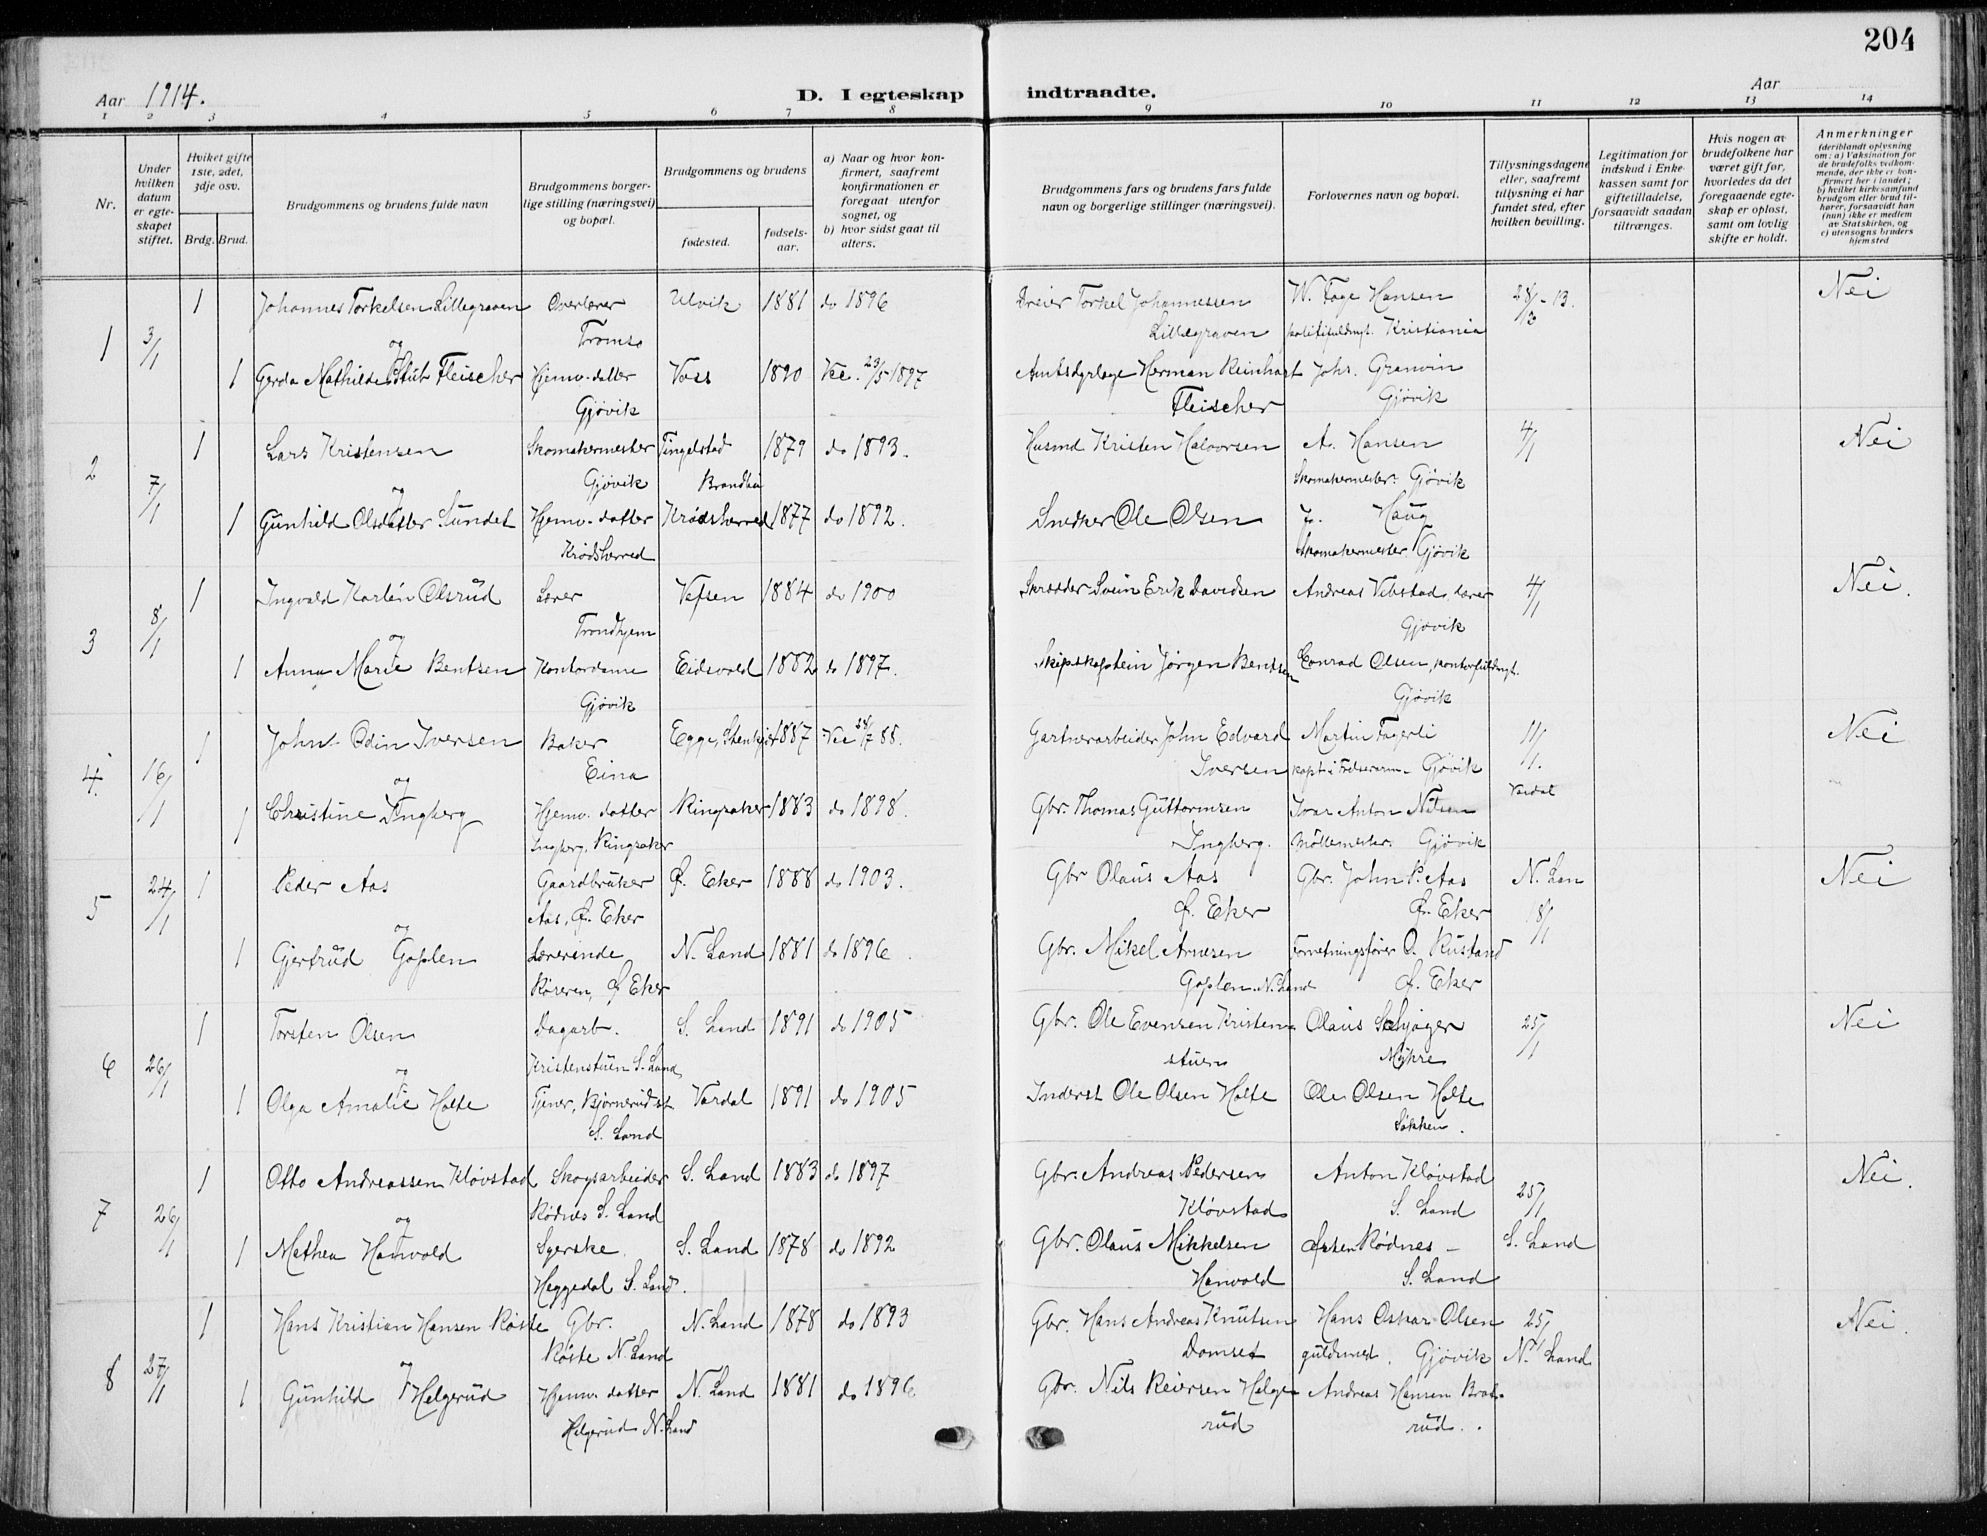 204
Aar 1914.
D. I egteskap
indtraadte.
Aar
1 2 3 4 5 6 7 8 9 10 11 12 13 14
Nr.
Under hvilken datum er egteskapet stiftet.
Hviket gifte 1ste, 2det, 3dje osv.
Brdg. Brud.
Brudgommens og brudens fulde navn
Brudgommens borgerlige stilling (næringsvei) og bopæl.
Brudgommens og brudens
fødested.
fødselsaar.
a) Naar og hvor konfirmert, saafremt konfirmationen er foregaat utenfor sognet, og
b) hvor sidst gaat til alters.
Brudgommens fars og brudens fars fulde navn og borgerlige stillinger (næringsvei).
Forlovernes navn og bopæl.
Tillysningsdagene eller, saafremt tillysning ei har fundet sted, efter hvilken bevilling.
Legitimation for indskud i Enkekassen samt for giftetilladelse, forsaavidt saadan tiltrænges.
Hvis nogen av brudefolkene har været gift før, hvorledes da det foregaaende egteskap er opløst, samt om lovlig skifte er holdt.
Anmerkninger (deriblandt oplysning om: a) Vaksination for de brudefolks vedkommende, der ikke er konfirmert her i landet; b) hvilket kirkesamfund brudgom eller brud tilhører, forsaavidt han (hun) ikke er medlem av Statskirken, og c) utensogns bruders hjemsted
1 3/1 1 Johannes Torkelsen Lillegraven Overlærer Ulvik 1881 do 1896 Dreier Torkel Johannessen W. Fage Hansen 28/12 - 13. Nei
Tromsø Lillegraven politifuldmgt. Kristiania
og
1 Gerda Mathilde Stub Fleischer Hjemv. datter Voss 1890 1897 Amtsdyrlæge Herman Reinhart Johs. Granvin
Gjøvik Fleischer Gjøvik
2 7/1 1 Lars Kristensen Skomakermester Tingelstad 1879 do 1893. Husmd Kristen Halvorsen A. Hansen 4/1 Nei
Gjøvik Brandbu Skomakermester. Gjøvik
og
1 Gunhild Olsdatter Sundet Hjemv. datter Krødsherred 1877 do 1892. Snedker Ole Olsen Jo. Haug
Krødsherred Skomakermester Gjøvik
3 8/1 1 Ingvald Martin Olsrud Lærer Vefsen 1884 do 1900 Skrædder Svein Erik Davidsen Andreas Vibstad, lærer 4/1 Nei.
Trondhjem Gjøvik
og
1 Anna Marie Bentsen Kontordame Eidsvold 1882 do 1897. Skipskaptein Jørgen Bentsen Conrad Olsen, kontorfuldmgt.
Gjøvik Gjøvik
4. 16/1 1 John Odin Iversen Baker Egge, Stenkjær 1887 Gartnerarbeider John Edvard Martin Fagerli 11/1. Nei
Eina Iversen kapt. i Frelsesarm. Gjøvik
og Vardal
1 Christine Ingberg Hjemv. datter Ringsaker 1883 do 1898. Gbr. Thomas Guttormsen Ivar Anton Nilsen
Ingberg, Ringsaker Ingberg. Møllemester. Gjøvik
5 24/1 1 Peder Aas Gaardbruker Ø. Eker 1888 do 1903. Gbr Olaus Aas Gbr. John P. Aas N. Lan Nei
Aas, Ø. Eker Ø. Eker Ø. Eker 18/1
og
1 Gjertrud Goplen Lærerinde N. Land 1881 do 1896. Gbr. Mikel Arnesen Forretningsfører O. Rustand
Røseren, Ø Eker Goplen N. Land Ø. Eker
6 26/1 1 Torsten Olsen Dagarb. S. Land 1891 do 1905 Gbr. Ole Evensen Kristen Olaus 25/1 Nei
Kristenstuen S. Land stuen Myhre
og
1 Olga Amalie Holte Tjener, Bjørnerud st Vardal 1891 do 1905 Inderst Ole Olsen Holte Ole Olsen Holte
S. Land Søkken.
7 26/1 1 Otto Andreassen Kløvstad Skogsarbeider S. Land 1883 do 1897 Gbr. Andreas Pedersen Anton Kløvstad 25/1 Nei.
Rødnes S. Land Kløvstad S. Land
og
1 Mathea Hanvold Syerske S. Land 1878 do 1892 Gbr. Olaus Mikkelsen Rødnes - S. Land
Heggedal S. Land. Hanvold S. Land
8 27/1 1 Hans Kristian Hansen Røste Gbr. N. Land 1878 do 1893 Gbr. Hans Andreas Knutsen Hans Oskar Olsen 25/1 Nei.
Røste N. Land Domset guldsmed. Gjøvik N. Land
og
1 Gunhild Helgerud Hjemv. datter N. Land 1881 do 1896 Gbr. Nils Reiersen Helge Andreas Hansen
Helgerud N. Land rud rud.